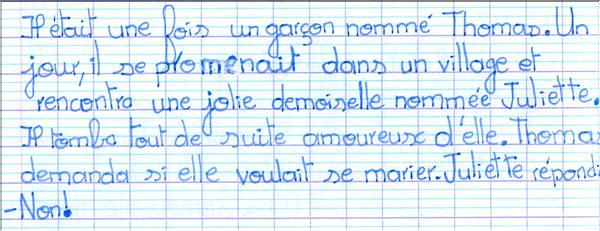 Il était une fois un garçon nommé Thomas. Un
jour, il se promenait dans un village et
rencontra une jolie demoiselle nommée Juliette.
Il tomba tout de suite amoureux d'elle. Thomas
demanda si elle voulait se marier. Juliette répondi
-Non!